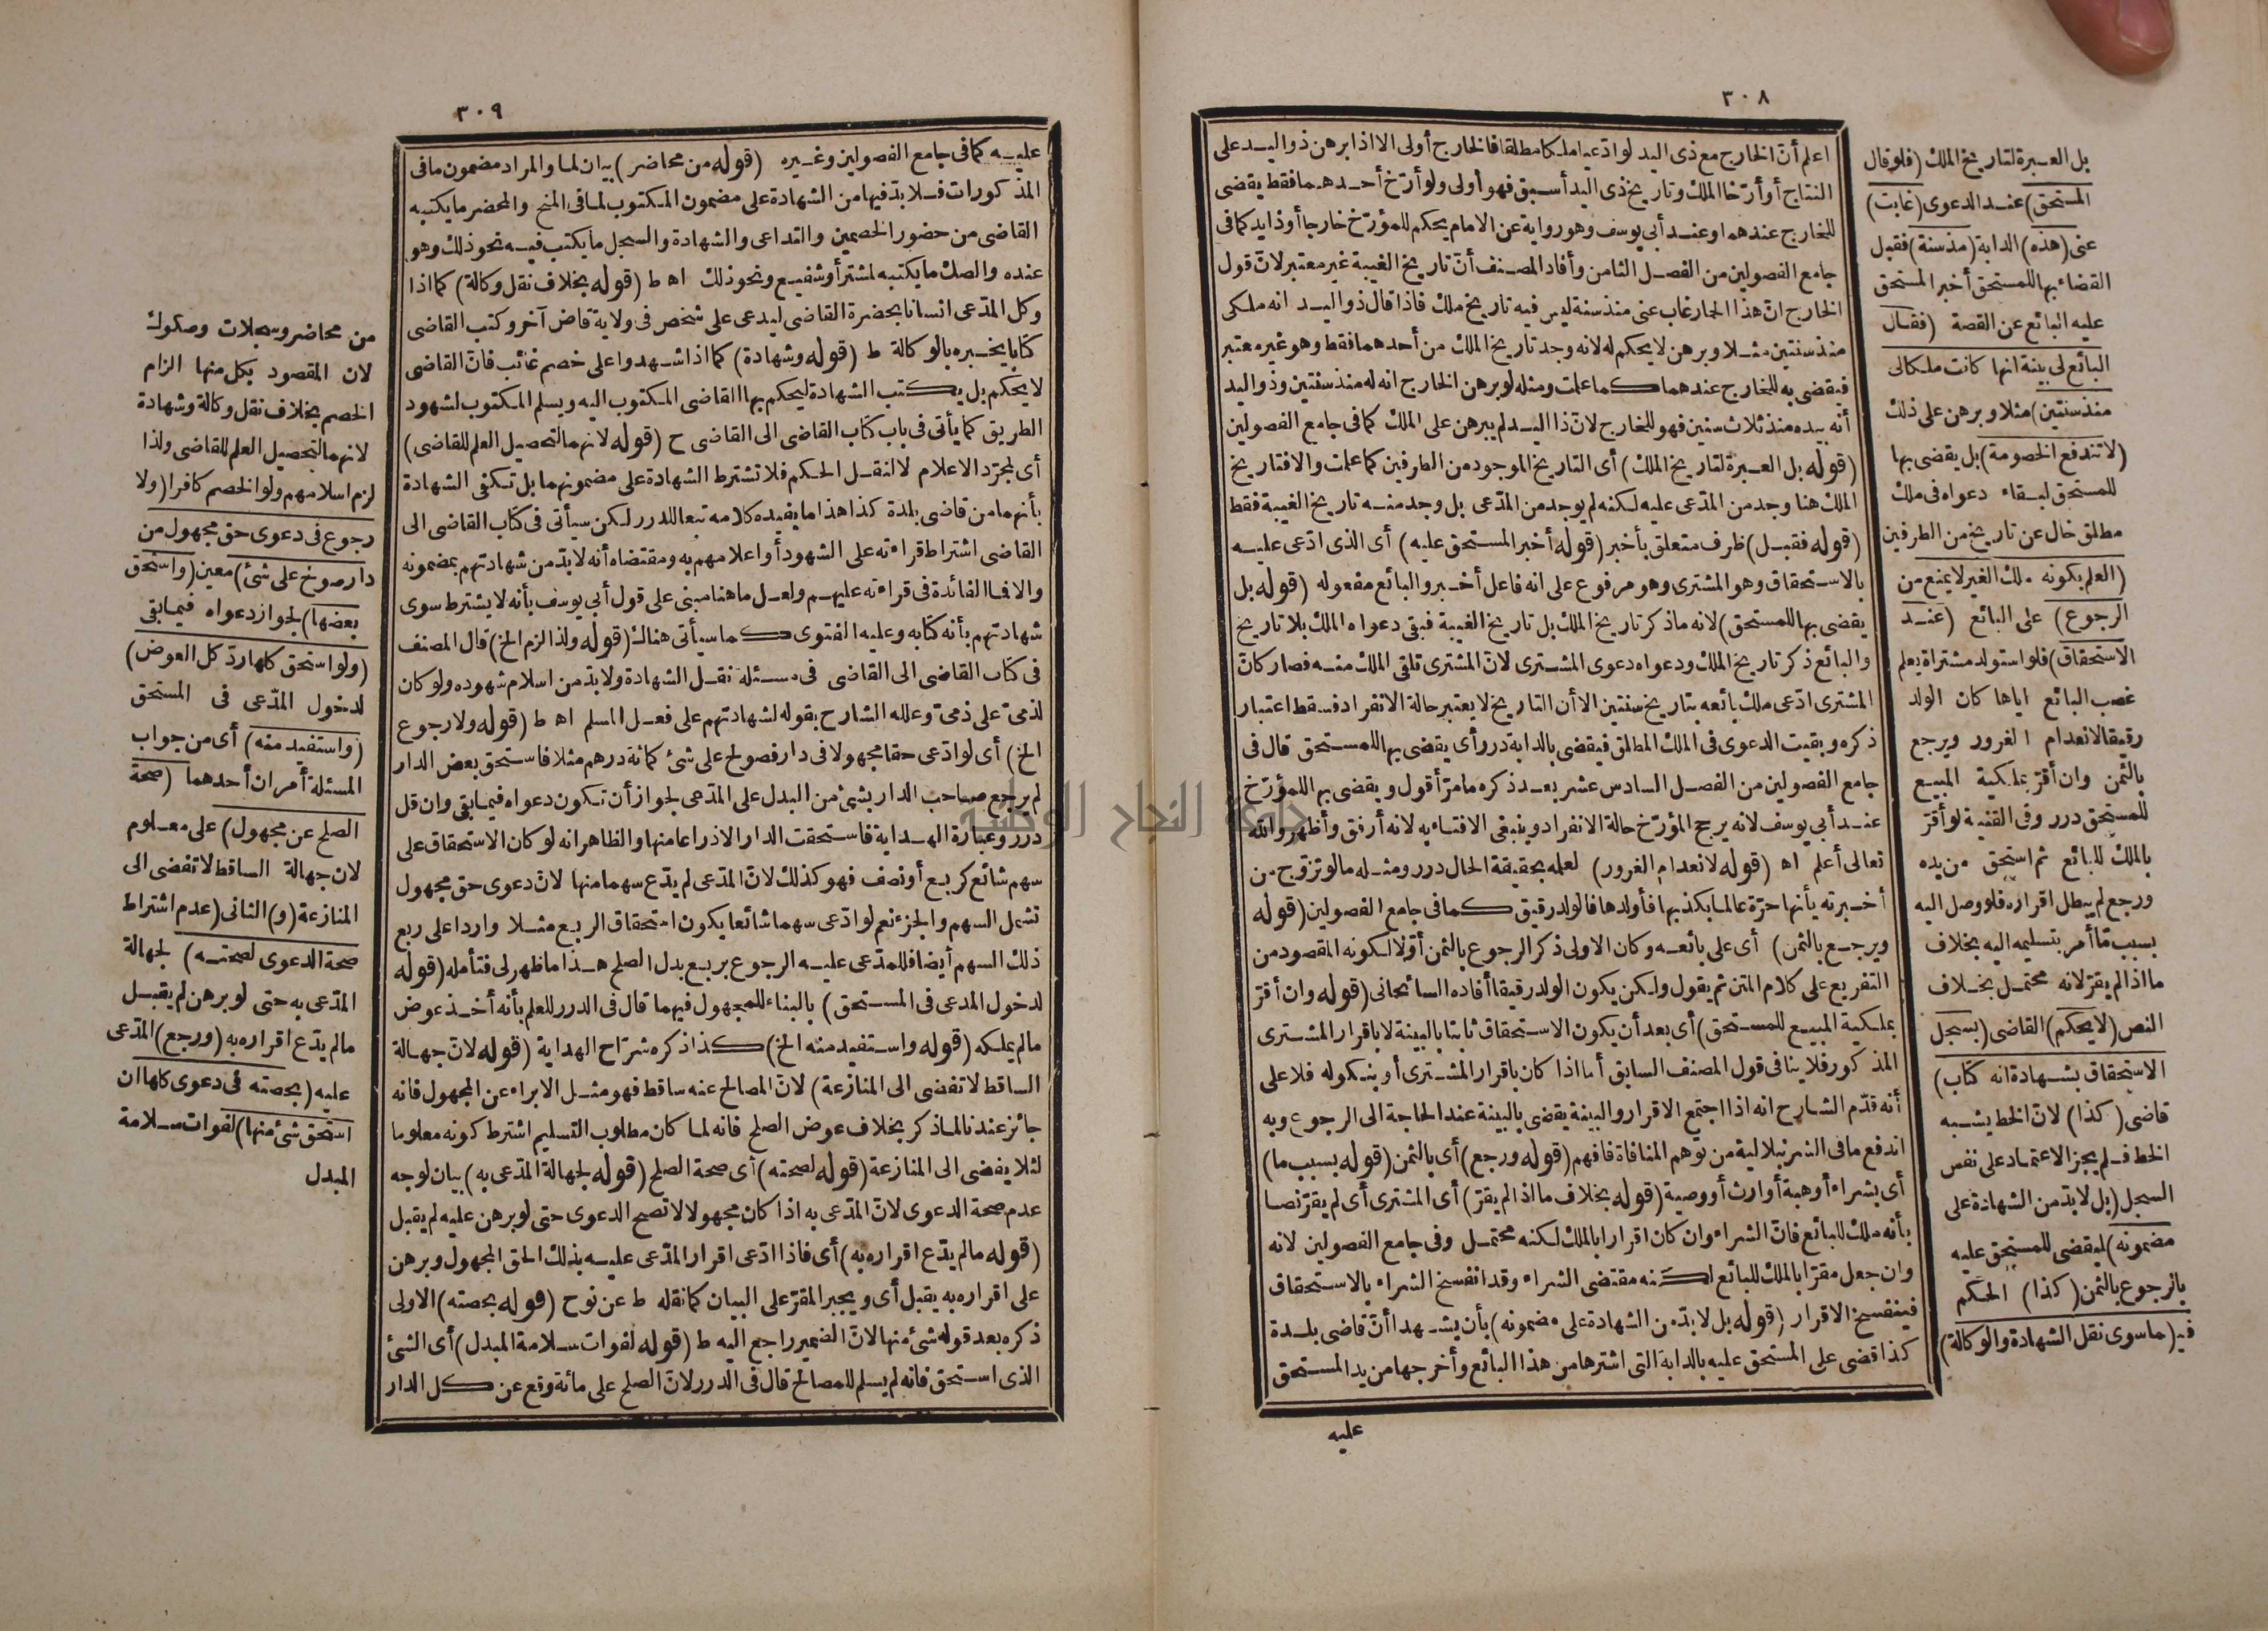 ٣٠٨
بل العبرة لتاريخ الملك (فلو قال
المستحق) عند الدعوى (غابت)
عنى (هذه) الدابة (منذ سنة) فقبل
القضاء بها للمستحق أخبر المستحق
عليه البائع عن القصة (فقال
البائع لى بينة انها كانت ملكا لى
منذ سنتين) مثلا وبرهن على ذلك
(لا تندفع الخصومة) بل يقضى بها
للمستحق لبقاء دعواه فى ملك
مطلق خال عن تاريخ من الطرفين
(العلم بكونه ملك الغير لا يمنع من
الرجوع) على البائع (عند
الاستحقاق) فلو استولد مشتراة يعلم
غصب البائع اياها كان الولد
رقيقا لانعدام الغرور ويرجع
بالثمن وان أقر بملكية المبيع
للمستحق درر وفى القنية لو أقر
بالملك للبائع ثم استحق من يده
ورجع لم يبطل اقراره فلو وصل اليه
بسبب ما أمر بتسليمه اليه بخلاف
ما اذا لم يقر لانه محتمل بخلاف
النص (لا يحكم) القاضى (بسجل
الاستحقاق بشهادة انه كتاب)
قاضى (كذا) لان الخط يشبه
الخط فلم يجز الاعتماد على نفس
السجل (بل لا بد من الشهادة على
مضمونه) ليقضى للمستحق عليه
بالرجوع بالثمن (كذا) الحكم
في (ما سوى نقل الشهادة والوكالة)
اعلم أن الخارج مع ذى اليد لو ادعيا ملكا مطلقا فالخارج أولى الا اذا برهن ذو اليد على
النتاج أو أرخا الملك وتاريخ ذى اليد أسبق فهو أولى ولو أرخ أحدهما فقط يقضى
للخارج عندهما وعند أبى يوسف وهو رواية عن الامام يحكم للمؤرخ خارجا أو ذا يد كما فى
جامع الفصولين من الفصل الثامن وأفاد المصنف أن تاريخ الغيبة غير معتبر لان قول
الخارج ان هذا الحمار غاب عنى منذ سنة ليس فيه تاريخ ملك فاذا قال ذو اليد انه ملكى
منذ سنتين مثلا وبرهن لا يحكم له لانه وجد تاريخ الملك من أحدهما فقط وهو غير معتبر
فيقضى به للخارج عندهما كما علمت ومثله لو برهن الخارج انه له منذ سنتين وذو اليد
أنه بيده منذ ثلاث سنين فهو للخارج لان ذا اليد لم يبرهن على الملك كما فى جامع الفصولين
(قوله بل العبرة لتاريخ الملك) أى التاريخ الموجود من الطرفين كما علمت والا فتاريخ
الملك هنا وجد من المدعى عليه لكنه لم يوجد من المدعى بل وجد منه تاريخ الغيبة فقط
(قوله فقبل) ظرف متعلق بأخبر (قوله أخبر المستحق عليه) أى الذى ادعى عليه
بالاستحقاق وهو المشترى وهو مرفوع على انه فاعل أخبر والبائع مفعوله (قوله بل
يقضى بها للمستحق) لانه ما ذكر تاريخ الملك بل تاريخ الغيبة فبقى دعواه الملك بلا تاريخ
والبائع ذكر تاريخ الملك ودعواه دعوى المشترى لان المشترى تلقى الملك منه فصار كأن
المشترى ادعى ملك بائعه بتاريخ سنتين الا أن التاريخ لا يعتبر حالة الانفراد فسقط اعتبار
ذكره وبقيت الدعوى فى الملك المطلق فيقضى بالدابة درر أى يقضى بها للمستحق قال فى
جامع الفصولين من الفصل السادس عشر بعد ذكره ما مر أقول ويقضى بها للمؤرخ
عند أبى يوسف لانه يرجح المؤرخ حالة الانفراد وينبغى الافتاء به لانه أرفق وأظهر والله
تعالى أعلم اه (قوله لانعدام الغرور) لعلمه بحقيقة الحال درر ومثله ما لو تزوج من
أخبرته بأنها حرة عالما بكذبها فأولدها فالولد رقيق كما فى جامع الفصولين (قوله
ويرجع بالثمن) أى على بائعه وكان الاولى ذكر الرجوع بالثمن أولا لكونه المقصود من
التفريع على كلام المتن ثم يقول ولكن يكون الولد رقيقا أفاده السائحانى (قوله وان أقر
بملكية المبيع للمستحق) أى بعد أن يكون الاستحقاق ثابتا بالبينة لا باقرار المشترى
المذكور فلا ينافى قول المصنف السابق أما اذا كان باقرار المشترى أو بنكوله فلا على
أنه قدم الشارح انه اذا اجتمع الاقرار والبينة يقضى بالبينة عند الحاجة الى الرجوع وبه
اندفع ما فى الشرنبلالية من توهم المنافاة فافهم (قوله ورجع) أى بالثمن (قوله بسبب ما)
أى بشراء أو هبة أو ارث أو وصية (قوله بخلاف ما اذا لم يقر) أى المشترى أى لم يقر نصا
بأنه ملك للبائع فان الشراء وان كان اقرارا بالملك لكنه محتمل وفى جامع الفصولين لانه
وان جعل مقرا بالملك للبائع لكنه مقتضى الشراء وقد انفسخ الشراء بالاستحقاق
فينفسخ الاقرار (قوله بل لا بد من الشهادة على مضمونه) بأن يشهدا أن قاضى بلدة
كذا قضى على المستحق عليه بالدابة التى اشتراها من هذا البائع وأخرجها من يد المستحق
عليه
٣٠٩
عليه كما فى جامع الفصولين وغيره (قوله من محاضر) بيان لما والمراد مضمون ما فى
المذكورات فلا بد فيها من الشهادة على مضمون المكتوب لما فى المنح والمحضر ما يكتبه
القاضى من حضور الخصمين والتداعى والشهادة والسجل ما يكتب فيه نحو ذلك وهو
عنده والصك ما يكتبه لمشتر أو شفيع ونحو ذلك اه ط (قوله بخلاف نقل وكالة) كما اذا
وكل المدعى انسانا بحضرة القاضى ليدعى على شخص فى ولاية قاض آخر وكتب القاضى
كتابا يخبره بالوكالة ط (قوله وشهادة) كما اذا شهدوا على خصم غائب فان القاضى
لا يحكم بل يكتب الشهادة ليحكم بها القاضى المكتوب اليه ويسلم المكتوب لشهود
الطريق كما يأتى فى باب كتاب القاضى الى القاضى ح (قوله لانهما لتحصيل العلم للقاضى)
أى لمجرد الاعلام لا لنقل الحكم فلا تشترط الشهادة على مضمونهما بل تكفى الشهادة
بأنهما من قاضى بلدة كذا هذا ما يفيده كلامه تبعا للدرر لكن سيأتى فى كتاب القاضى الى
القاضى اشتراط قراءته على الشهود أو اعلامهم به ومقتضاه أنه لا بد من شهادتهم بمضمونه
والا فما الفائدة فى قراءته عليهم ولعل ما هنا مبنى على قول أبى يوسف بأنه لا يشترط سوى
شهادتهم بأنه كتابه وعليه الفتوى كما سيأتى هناك (قوله ولذا لزم الخ) قال المصنف
فى كتاب القاضى الى القاضى فى مسئلة نقل الشهادة ولا بد من اسلام شهوده ولو كان
لذمى على ذمى وعلله الشارح بقوله لشهادتهم على فعل المسلم اه ط (قوله ولا رجوع
الخ) أى لو ادعى حقا مجهولا فى دار فصولح على شئ كمائة درهم مثلا فاستحق بعض الدار
لم يرجع صاحب الدار بشئ من البدل على المدعى لجواز أن تكون دعواه فيما بقى وان قل
درر وعبارة الهداية فاستحقت الدار الا ذراعا منها والظاهر انه لو كان الاستحقاق على
سهم شائع كربع أو نصف فهو كذلك لان المدعى لم يدع سهما منها لان دعوى حق مجهول
تشمل السهم والجزء نعم لو ادعى سهما شائعا يكون استحقاق الربع مثلا واردا على ربع
ذلك السهم أيضا فللمدعى عليه الرجوع بربع بدل الصلح هذا ما ظهر لى فتأمله (قوله
لدخول المدعى فى المستحق) بالبناء للمجهول فيهما قال فى الدرر للعلم بأنه أخذ عوض
ما لم يملكه (قوله واستفيد منه الخ) كذا ذكره شراح الهداية (قوله لان جهالة
الساقط لا تفضى الى المنازعة) لان المصالح عنه ساقط فهو مثل الابراء عن المجهول فانه
جائز عندنا لما ذكر بخلاف عوض الصلح فانه لما كان مطلوب التسليم اشترط كونه معلوما
لئلا يفضى الى المنازعة (قوله لصحته) أى صحة الصلح (قوله لجهالة المدعى به) بيان لوجه
عدم صحة الدعوى لان المدعى به اذا كان مجهولا لا تصح الدعوى حتى لو برهن عليه لم يقبل
(قوله ما لم يدع اقراره به) أى فاذا ادعى اقرار المدعى عليه بذلك الحق المجهول وبرهن
على اقراره به يقبل أى ويجبر المقر على البيان كما نقله ط عن نوح (قوله بحصته) الاولى
ذكره بعد قوله شئ منها لان الضمير راجع اليه ط (قوله لفوات سلامة المبدل) أى الشئ
الذى استحق فانه لم يسلم للمصالح قال فى الدرر لان الصلح على مائة وقع عن كل الدار
من محاضر وسجلات وصكوك
لان المقصود بكل منها الزام
الخصم بخلاف نقل وكالة وشهادة
لانهما لتحصيل العلم للقاضى ولذا
لزم اسلامهم ولو الخصم كافرا (ولا
رجوع فى دعوى حق مجهول من
دار صولح على شئ) معين (واستحق
بعضها) لجواز دعواه فيما بقى
(ولو استحق كلها رد كل العوض)
لدخول المدعى فى المستحق
(واستفيد منه) أى من جواب
المسئلة أمران أحدهما (صحة
الصلح عن مجهول) على معلوم
لان جهالة الساقط لا تفضى الى
المنازعة (و) الثانى (عدم اشتراط
صحة الدعوى لصحته) لجهالة
المدعى به حتى لو برهن لم يقبل
ما لم يدع اقراره به (ورجع) المدعى
عليه (بحصته فى دعوى كلها ان
استحق شئ منها) لفوات سلامة
المبدل
جامعة النجاح الوطنية